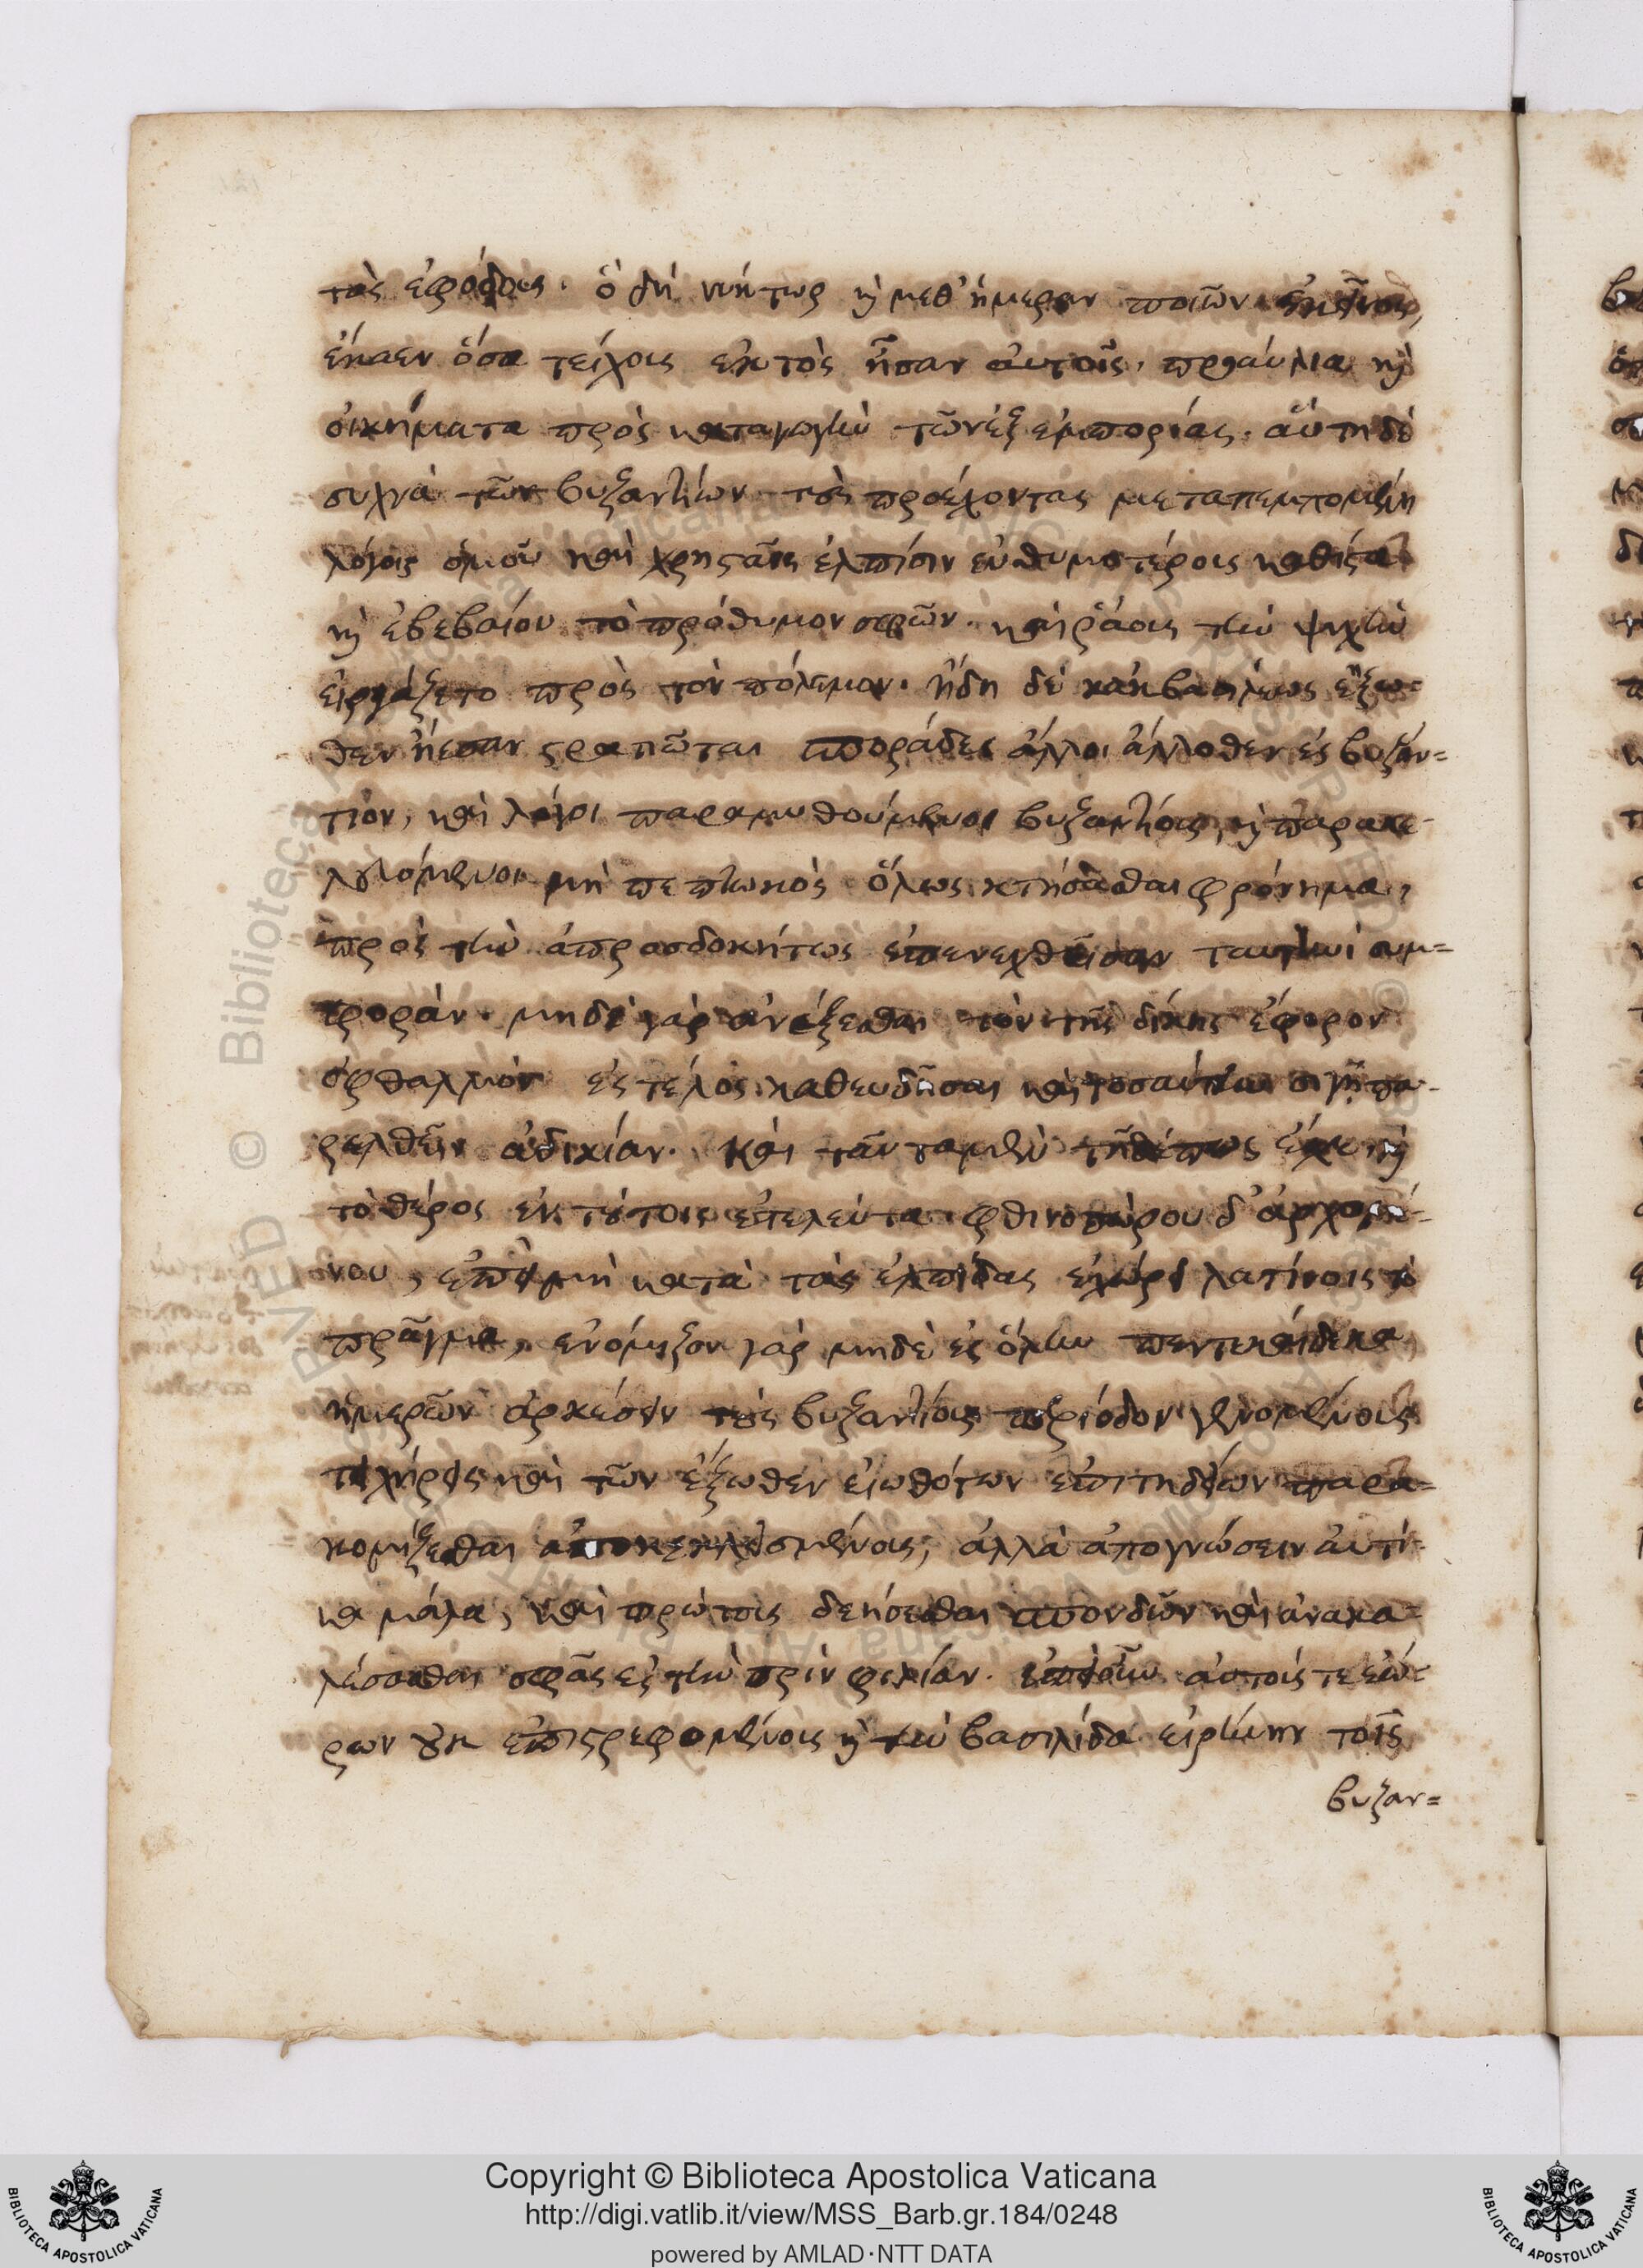 τὰς ἐφόδους. ὃ δὴ νύκτωρ καὶ μεθ' ἡμέραν ποιῶν ἐκεῖνος,
ἔκαεν ὅσα τείχους ἐκτὸς ἦσαν αὐτοῖς, προαύλια καὶ
οἰκήματα πρὸς καταγωγὴν τῶν ἐξ ἐμπορίας. αὕτη δὲ
συχνὰ τῶν βυζαντίων τοὺς προέχοντας μεταπεμπομένη
λόγοις ὁμοῦ καὶ χρησταῖς ἐλπίσιν εὐθυμοτέρους καθίστα
καὶ ἐβεβαίου τὸ πρόθυμον σφῶν. καὶ ῥάους τὴν ψυχὴν
εἰργάζετο πρὸς τὸν πόλεμον. ἤδη δὲ κἀκ βασιλέως ἔξω=
θεν ᾔεσαν στρατιῶται σποράδες ἄλλοι ἄλλοθεν ἐς βυζάν=
τιον, καὶ λόγοι παραμυθούμενοι βυζαντίους, καὶ παρακε-
λευόμενοι μὴ πεπτωκὸς ὅλως κτήσασθαι φρόνημα,
πρὸς τὴν ἀπροσδοκήτως ἐπενεχθεῖσαν ταυτηνὶ συμ=
φοράν. μηδὲ γὰρ ἀνέξεσθαι τὸν τῆς δίκης ἔφορον
ὀφθαλμὸν ἐς τέλος καθευδῆσαι καὶ τοσαύτην σιγῇ πα-
ρελθεῖν ἀδικίαν. Καὶ ταῦτα μὲν τῇδέ πως εἶχε καὶ
τὸ θέρος ἐν τούτοις ἐτελεύτα. φθινοπώρου δ' ἀρχομέ-
νου, ἐπεὶ μὴ κατὰ τὰς ἐλπίδας ἐχώρει λατίνοις τὸ
πρᾶγμα, ἐνόμιζον γὰρ μηδὲ ἐς ὅλην πεντεκαίδεκα
ἡμερῶν ἀρκέσειν τοὺς βυζαντίους περίοδον γενομένους
τειχήρεις καὶ τῶν ἔξωθεν εἰωθότων ἐπιτηδείων παρα=
κομίζεσθαι ἀποκεκλεισμένους, ἀλλὰ ἀπογνώσειν αὐτί-
κα μάλα, καὶ πρώτους δεήσεσθαι σπονδῶν καὶ ἀνακα=
λέσασθαι σφᾶς ἐς τὴν πρὶν φιλίαν. ἐπεὶ οὖν αὐτούς τε ἑώ-
ρων οὐκ ἐπιστρεφομένους καὶ τὴν βασιλίδα εἰρήνην τοῖς
βυζαν=